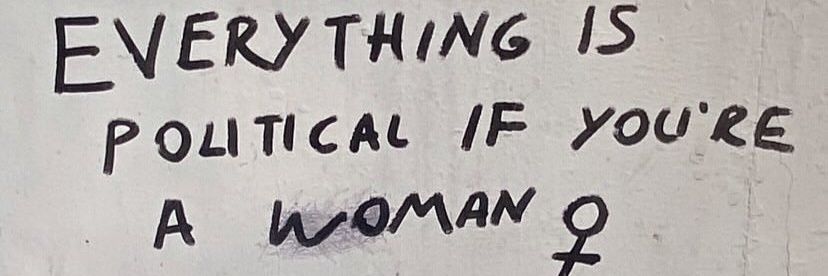 EVERYTHING IS
POLITICAL IF YOU'RE
A WOMAN ♀